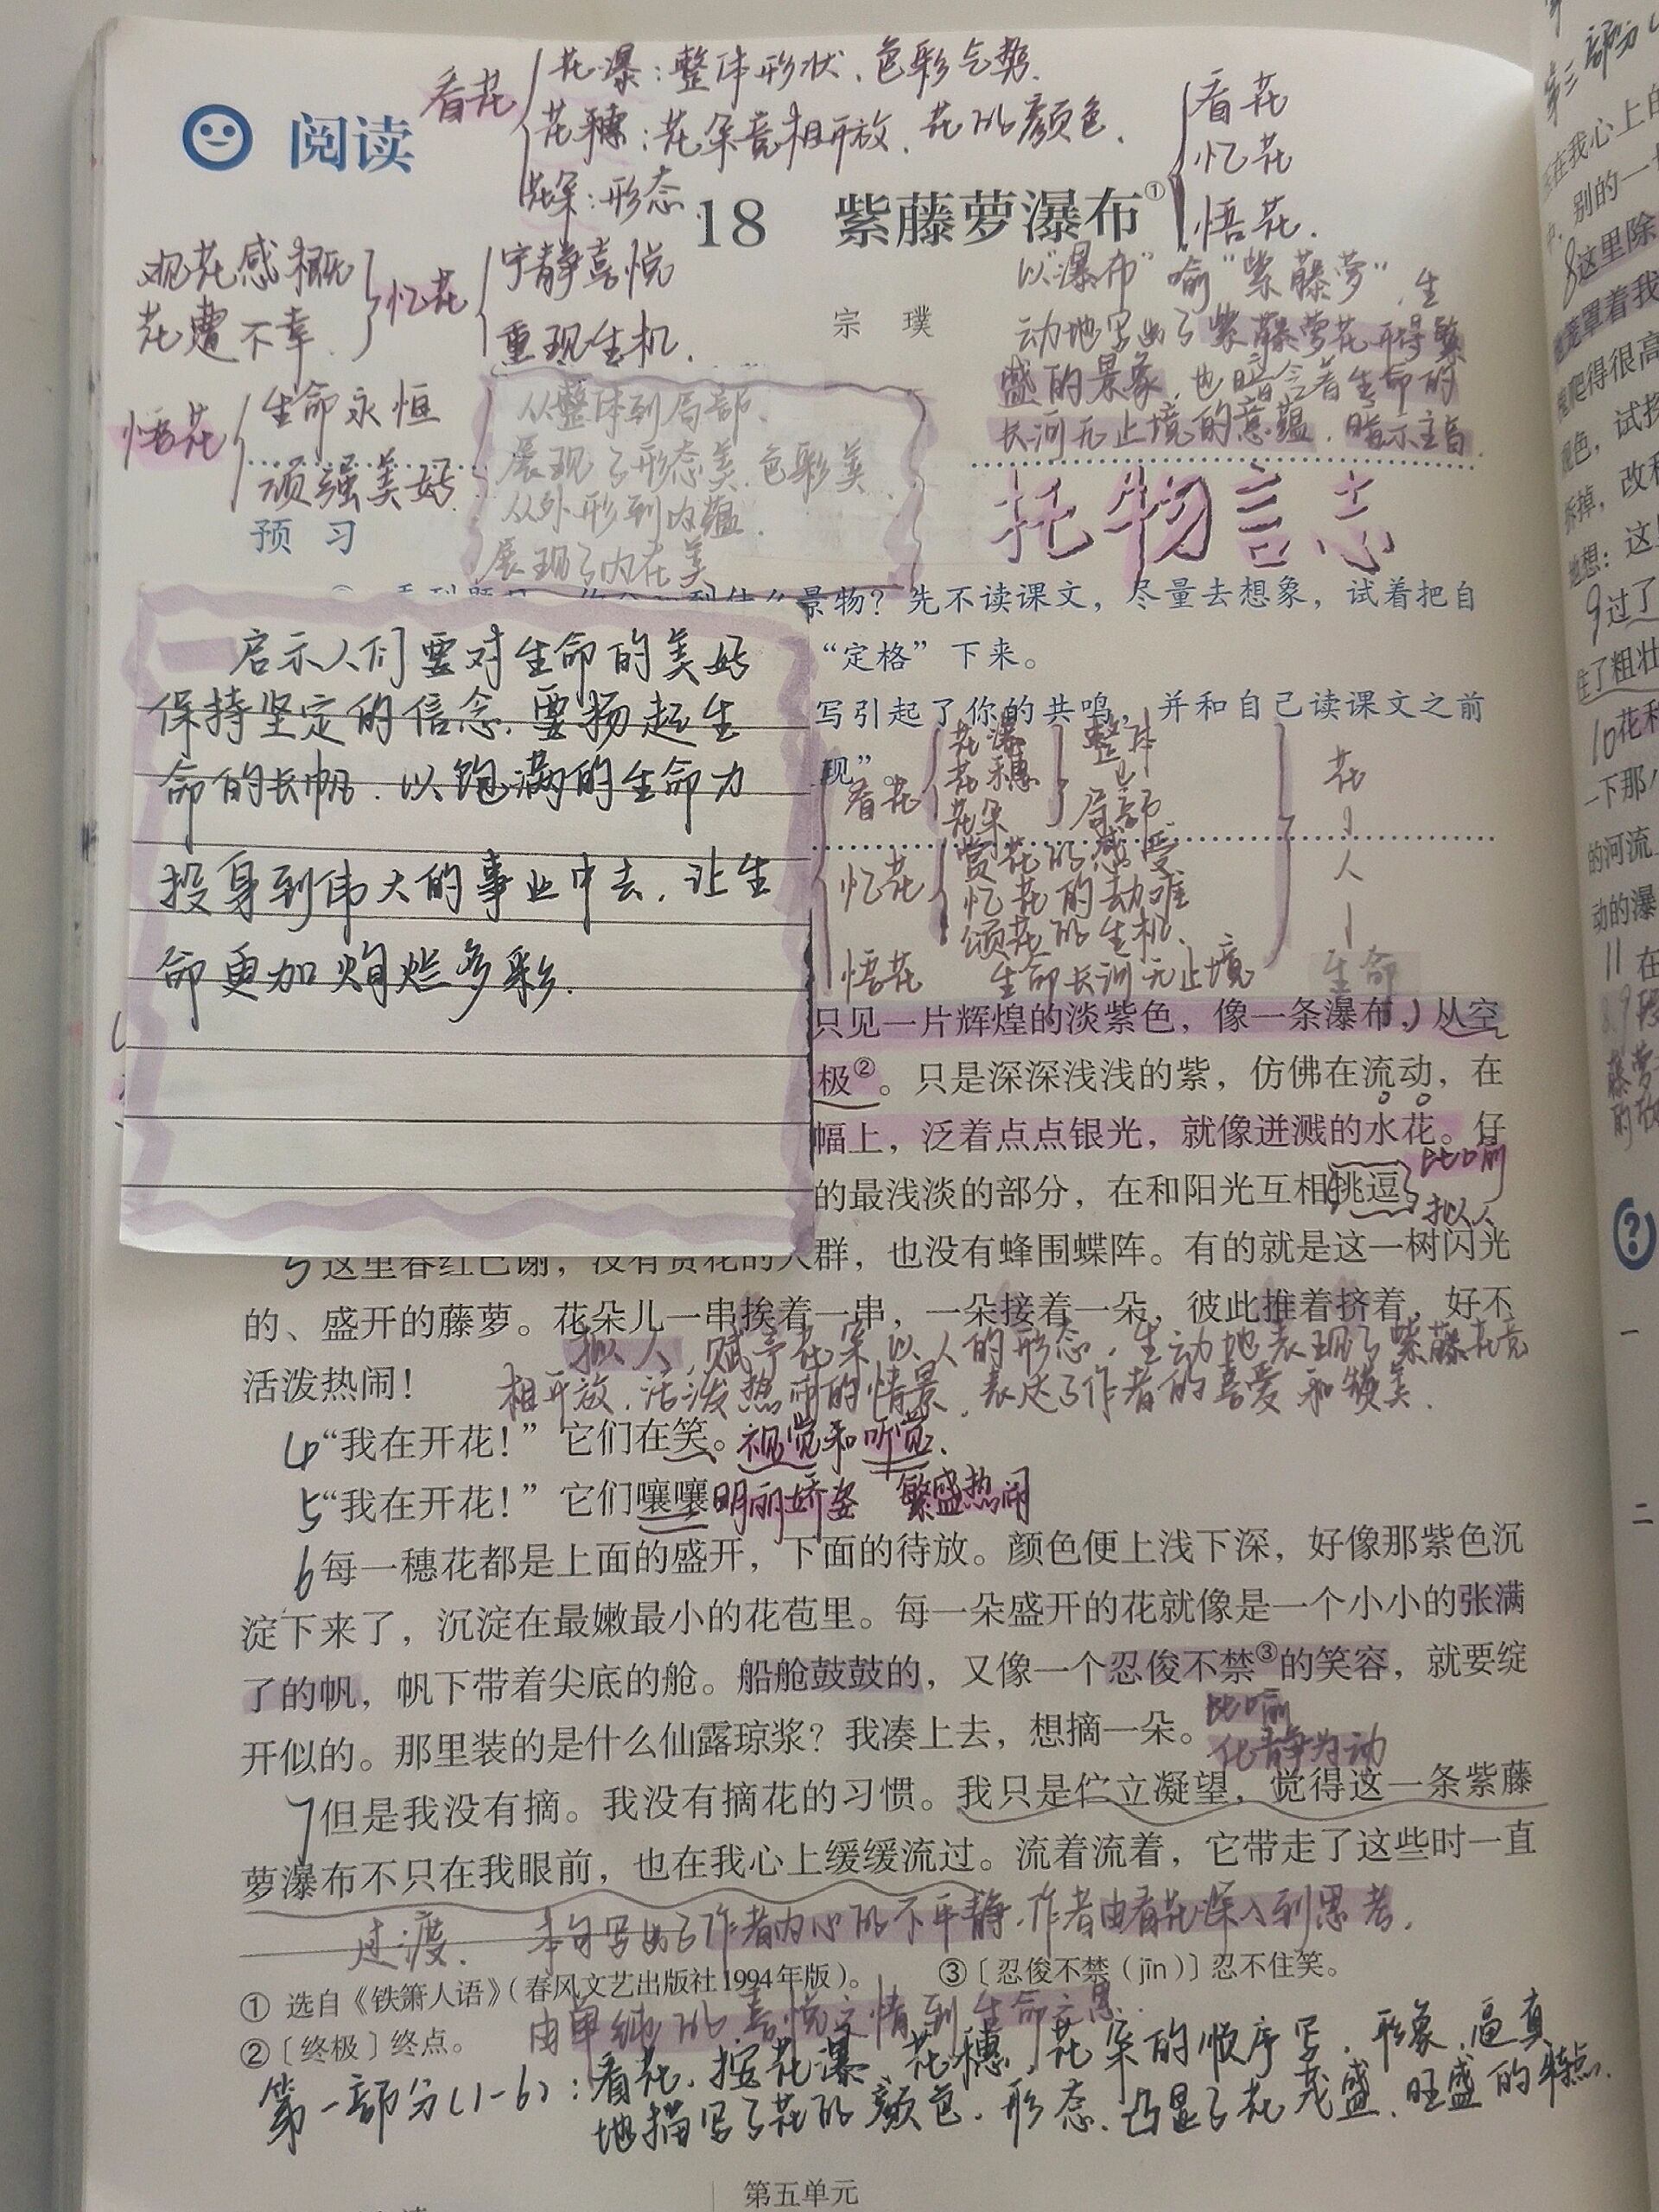 看花
花瀑：整体形状、色彩气势.
花穗：花朵竞相开放、花的颜色.
花朵：形态.
阅读
看花
忆花
悟花.
18 紫藤萝瀑布①
宗 璞
观花感概
花遭不幸.
忆花
宁静喜悦
重现生机.
悟花
生命永恒
顽强美好.
从整体到局部.
展现了形态美、色彩美.
从外形到内蕴.
展现了内在美
以“瀑布”喻“紫藤萝”，生
动地写出了紫藤萝花开得繁
盛的景象，也暗含着生命的
长河无止境的意蕴，暗示主旨.
托物言志
预 习
景物？先不读课文，尽量去想象，试着把自
“定格”下来。
写引起了你的共鸣，并和自己读课文之前
现”。
启示人们要对生命的美好
保持坚定的信念，要扬起生
命的长帆，以饱满的生命力
投身到伟大的事业中去，让生
命更加灿烂多彩.
看花
花瀑
花穗
花朵
整体
局部
忆花
赏花的感受
忆花的劫难
颂花的生机.
悟花 生命长河无止境
花
人
生命
只见一片辉煌的淡紫色，像一条瀑布，从空
极②。只是深深浅浅的紫，仿佛在流动，在
幅上，泛着点点银光，就像迸溅的水花。仔
比喻
的最浅淡的部分，在和阳光互相挑逗
拟人
这里春红已谢，没有赏花的人群，也没有蜂围蝶阵。有的就是这一树闪光
的、盛开的藤萝。花朵儿一串挨着一串，一朵接着一朵，彼此推着挤着，好不
拟人，赋予花朵以人的形态，生动地表现了紫藤花竞
活泼热闹！
相开放、活泼热闹的情景，表达了作者的喜爱和赞美.
4“我在开花！”它们在笑。视觉和听觉.
5“我在开花！”它们嚷嚷 明丽娇姿 繁盛热闹
6每一穗花都是上面的盛开，下面的待放。颜色便上浅下深，好像那紫色沉
淀下来了，沉淀在最嫩最小的花苞里。每一朵盛开的花就像是一个小小的张满
了的帆，帆下带着尖底的舱。船舱鼓鼓的，又像一个忍俊不禁③的笑容，就要绽
开似的。那里装的是什么仙露琼浆？我凑上去，想摘一朵。
比喻
化静为动
7但是我没有摘。我没有摘花的习惯。我只是伫立凝望，觉得这一条紫藤
萝瀑布不只在我眼前，也在我心上缓缓流过。流着流着，它带走了这些时一直
过渡. 本句写出了作者内心的不平静，作者由看花深入到思考.
① 选自《铁箫人语》（春风文艺出版社1994年版）。
③〔忍俊不禁（jīn）〕忍不住笑。
由单纯的喜悦之情到生命之思.
②〔终极〕终点。
第一部分（1-6）：看花，按花瀑、花穗、花朵的顺序写，形象、逼真
地描写了花的颜色、形态，凸显了花茂盛、旺盛的特点.
第五单元
第三部分
在我心上的
别的一
8这里除
笼罩着我
爬得很高
色，试探
拆掉，改种
地想：这里
9过了
住了粗壮
10花和
一下那小
的河流
动的瀑
11在
藤萝
的
一
二